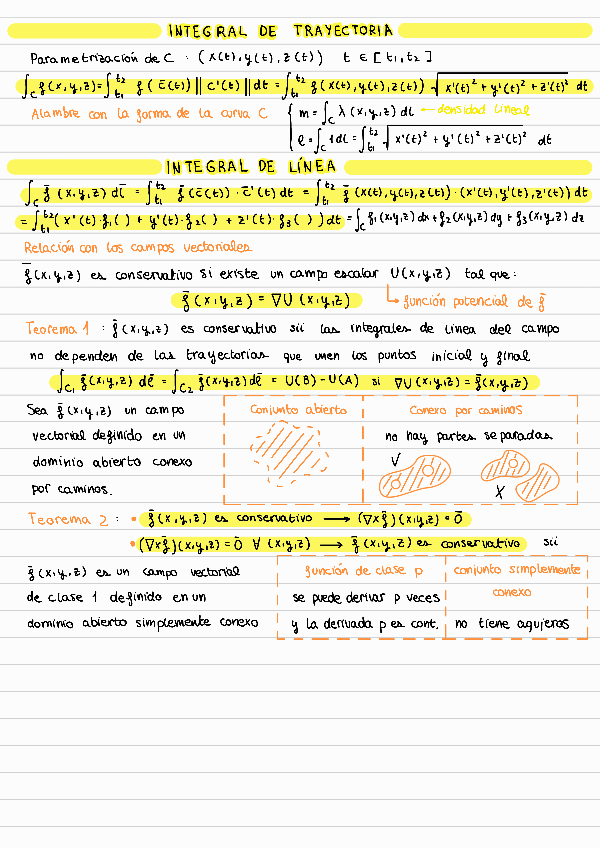 INTEGRAL DE TRAYECTORIA
Parametrización de C : (x(t), y(t), z(t))   t ∈ [t₁, t₂]
∫_C f(x,y,z) = ∫_{t1}^{t2} f(c̄(t)) ‖c'(t)‖ dt = ∫_{t1}^{t2} f(x(t), y(t), z(t)) √(x'(t)² + y'(t)² + z'(t)²) dt
Alambre con la forma de la curva C
m = ∫_C λ(x,y,z) dl ← densidad lineal
ℓ = ∫_C 1 dl = ∫_{t1}^{t2} √(x'(t)² + y'(t)² + z'(t)²) dt
INTEGRAL DE LÍNEA
∫_C f̄(x,y,z) dl̄ = ∫_{t1}^{t2} f̄(c̄(t)) · c̄'(t) dt = ∫_{t1}^{t2} f̄(x(t), y(t), z(t)) · (x'(t), y'(t), z'(t)) dt
= ∫_{t1}^{t2} (x'(t)·f₁( ) + y'(t)·f₂( ) + z'(t)·f₃( )) dt = ∫_C f₁(x,y,z) dx + f₂(x,y,z) dy + f₃(x,y,z) dz
Relación con los campos vectoriales
f̄(x,y,z) es conservativo si existe un campo escalar U(x,y,z) tal que:
f̄(x,y,z) = ∇U(x,y,z)   ↳ función potencial de f̄
Teorema 1 : f̄(x,y,z) es conservativo sii las integrales de línea del campo
no dependen de las trayectorias que unen los puntos inicial y final
∫_{C1} f̄(x,y,z) dℓ̄ = ∫_{C2} f̄(x,y,z) dℓ̄ = U(B) - U(A) si ∇U(x,y,z) = f̄(x,y,z)
Sea f̄(x,y,z) un campo
vectorial definido en un
dominio abierto conexo
por caminos.
conjunto abierto
conexo por caminos
no hay partes separadas
✓
X
Teorema 2 : • f̄(x,y,z) es conservativo → (∇×f̄)(x,y,z) = 0̄
• (∇×f̄)(x,y,z) = 0̄ ∀ (x,y,z) → f̄(x,y,z) es conservativo sii
f̄(x,y,z) es un campo vectorial
de clase 1 definido en un
dominio abierto simplemente conexo
función de clase p
se puede derivar p veces
y la derivada p es cont.
conjunto simplemente
conexo
no tiene agujeros